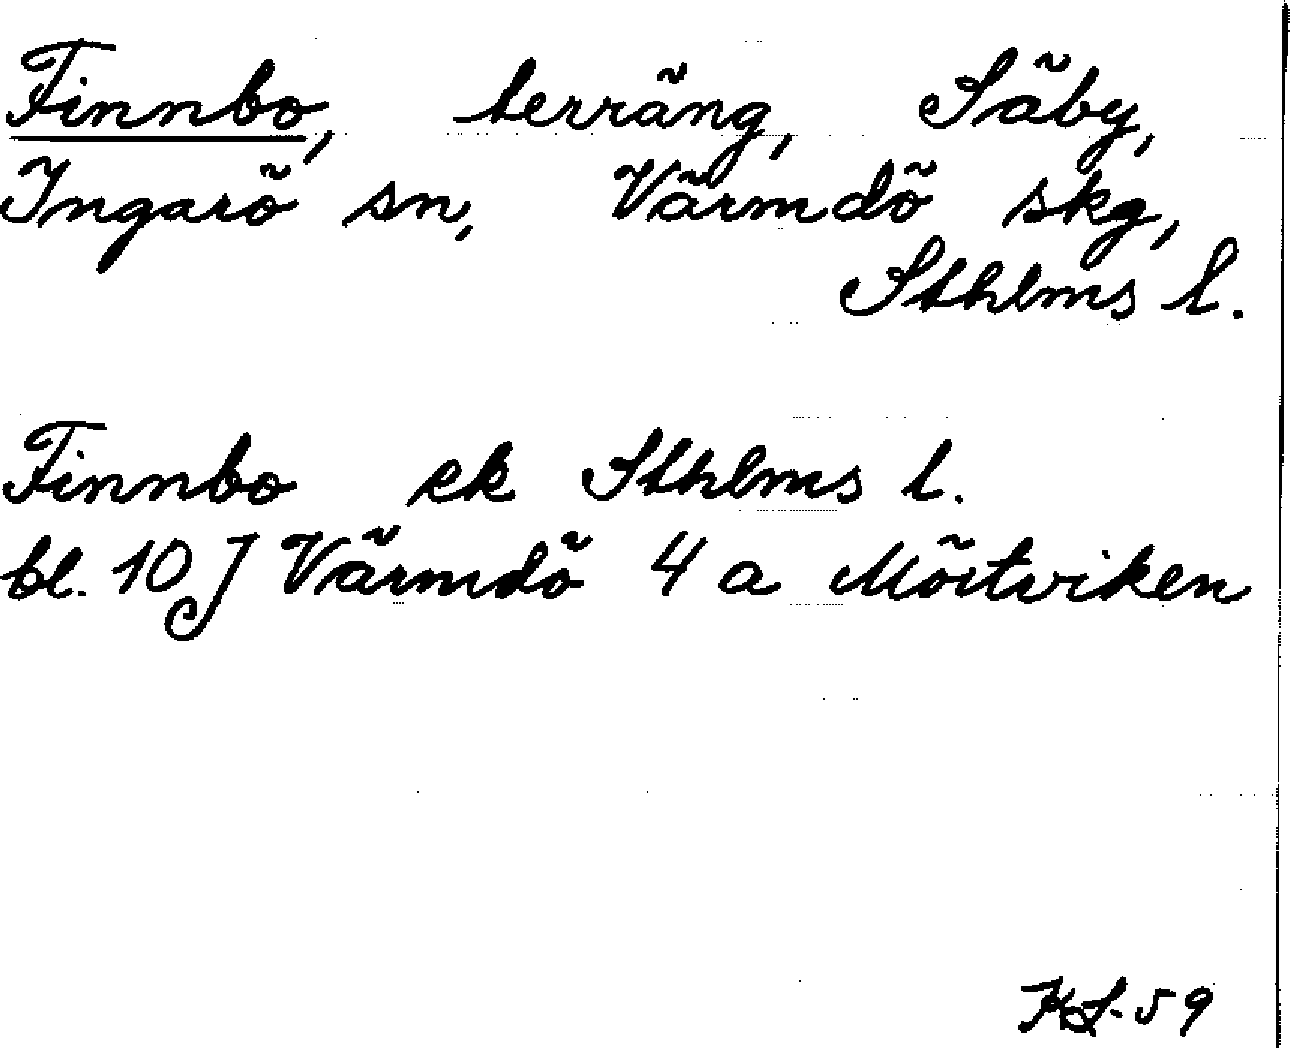 Finnbo, terräng, Säby,
Ingarö sn, Värmdö skg,
Sthlms l.
Finnbo ek Sthlms l.
bl. 10 J Värmdö 4 a Mörtviken
59